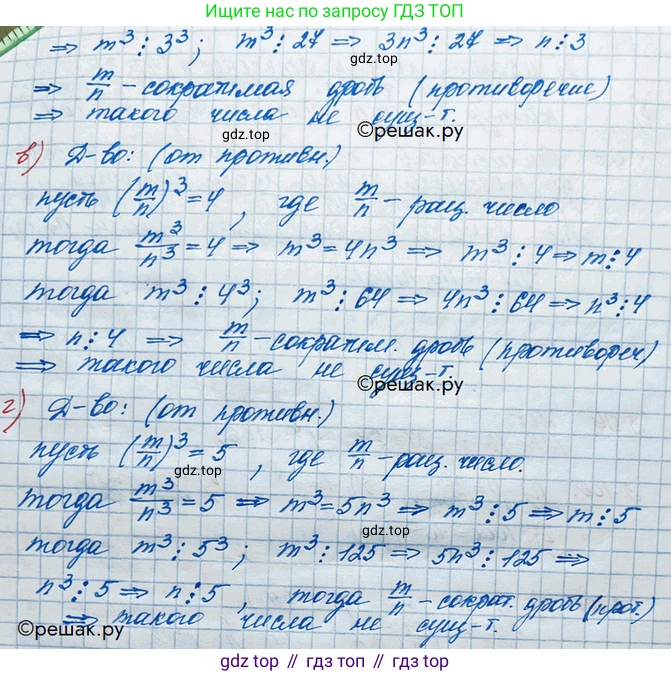 Ищите нас по запросу ГДЗ ТОП
⇒ m³ ⋮ 3³; m³ ⋮ 27 ⇒ 3n³ ⋮ 27 ⇒ n ⋮ 3
gdz.top
⇒ m/n - сократимая дробь (противоречие)
⇒ такого числа не сущ-т.
gdz.top
©reшак.ру
в) Д-во: (от противн.)
пусть (m/n)³ = 4, где m/n - рац. число
gdz.top
тогда m³/n³ = 4 ⇒ m³ = 4n³ ⇒ m³ ⋮ 4 ⇒ m ⋮ 4
тогда m³ ⋮ 4³; m³ ⋮ 64 ⇒ 4n³ ⋮ 64 ⇒ n³ ⋮ 4
⇒ n ⋮ 4 ⇒ m/n - сократим. дробь (противореч)
⇒ такого числа не сущ-т.
gdz.top
©reшак.ру
г) Д-во: (от противн.)
пусть (m/n)³ = 5, где m/n - рац. число.
gdz.top
тогда m³/n³ = 5 ⇒ m³ = 5n³ ⇒ m³ ⋮ 5 ⇒ m ⋮ 5
gdz.top
тогда m³ ⋮ 5³; m³ ⋮ 125 ⇒ 5n³ ⋮ 125 ⇒
n³ ⋮ 5 ⇒ n ⋮ 5, тогда m/n - сократ. дробь (прот.)
gdz.top
⇒ такого числа не сущ-т.
©reшак.ру
©reшак.ру
gdz.top // гдз.топ // gdz.top // гдз.топ